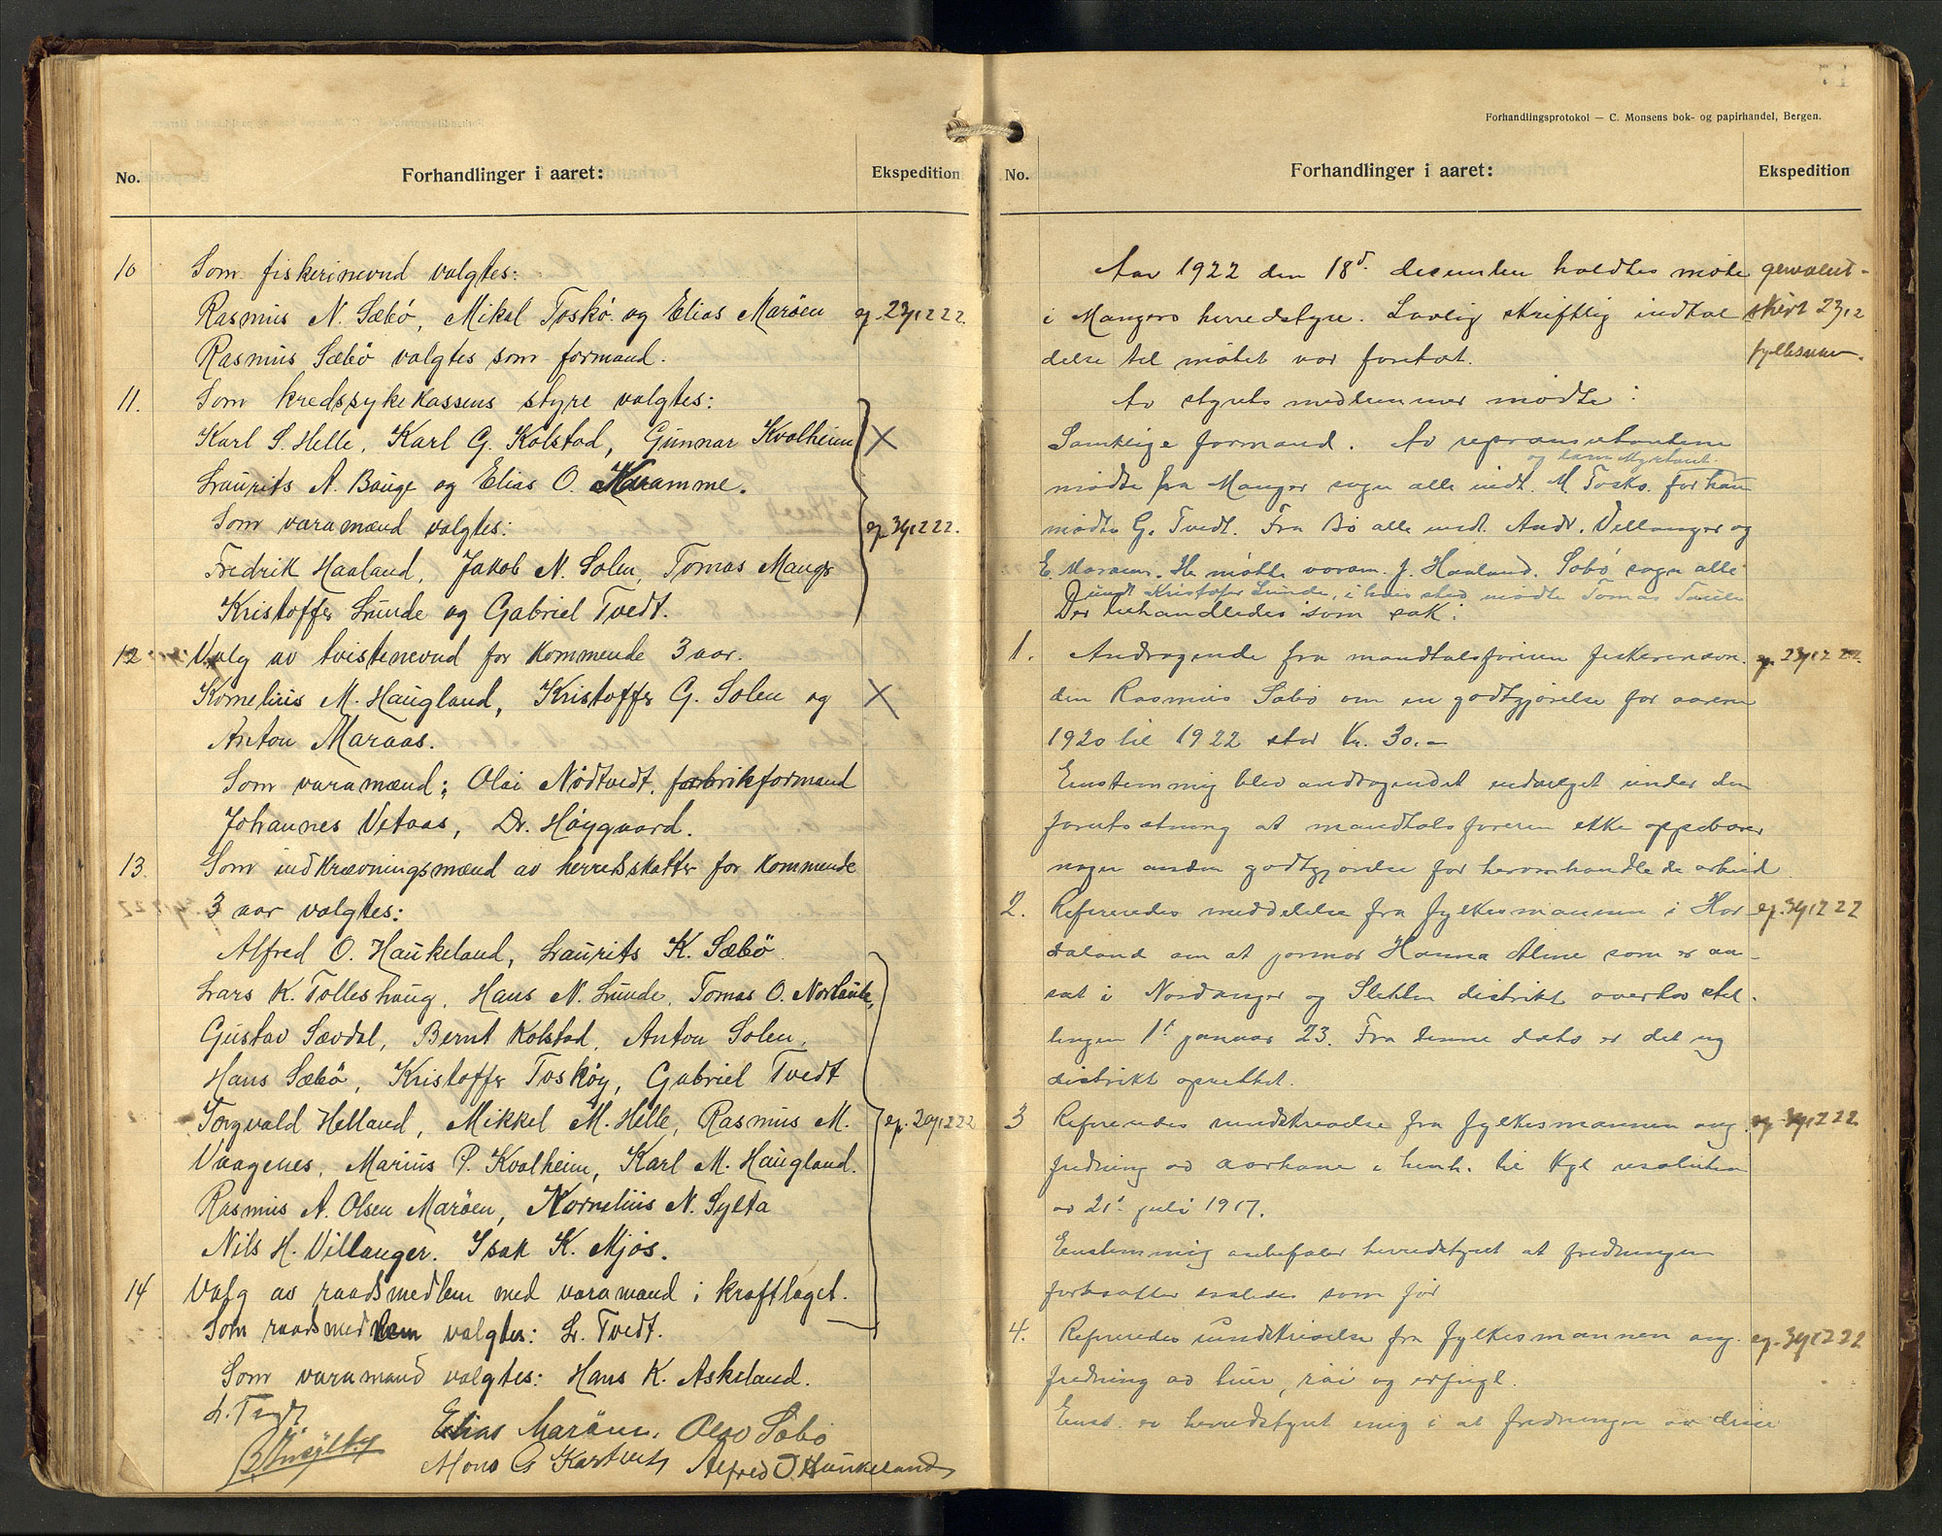 No.
Forhandlinger i aaret:
Ekspedition
10 Som fiskerinevnd valgtes:
Rasmus N. Sæbö, Mikal Toskö og Elias Maröen
Rasmus Sæbö valgtes som formand.
11. Som kredssykekassens styre valgtes:
Karl S. Helle, Karl G. Kolstad, Gunnar Kvalheim X
Laurits A. Bauge og Elias O. Kvamme.
Som varamænd valgtes:
Fredrik Haaland, Jakob N. Solen, Tomas Mangs
Kristoffer Lunde og Gabriel Tvedt.
12 Valg av tvistenevnd for kommende 3 aar.
Kornelius M. Haugland, Kristoffer G. Solen og X
Anton Maraas.
Som varamænd: Olai Nödtvedt, fabrikformand
Johannes Vetaas, Dr. Höygaard.
13. Som indkrævningsmænd av herredsskatter for kommende
3 aar valgtes:
Alfred O. Haukeland, Laurits K. Sæbö.
Lars K. Tolleshaug, Hans N. Lunde, Tomas O.
Gustav Sævdal, Bernt Kolstad, Anton Solen,
Hans Sæbö, Kristoffer Tosköy, Gabriel Tvedt
Torgvald Helland, Mikkel M. Helle, Rasmus M.
Vaagenes, Marius P. Kvalheim, Karl M. Haugland.
Rasmus A. Olsen Maröen, Kornelius N. Sylta
Nils H. Villanger. Isak K. Mjös.
14 Valg av raadsmedlem med varamand i kraftlaget.
Som raadsmedlem valgtes: L. Tvedt.
Som varamand valgtes: Hans K. Askeland.
L. Tvedt
Elias Maröen, Olav Sæbö
Mons Alfred O Haukeland
Forhandlingsprotokol — C. Monsens bok- og papirhandel, Bergen.
No.
Forhandlinger i aaret:
Ekspedition
Aar 1922 den 18d. december holdtes møte
i Mangers herredstyre. Lovlig skriftlig indkal
delse til møtet var foretat.
Av styrets medlemmer mødte:
Samtlige formænd. Av repræsentantene
mødte fra Manger sogn alle undt. M. Toskø. for ham
mødte G. Tvedt. Fra Bø alle undt. Andr. Villanger og
E. Marøen. møtte varam. J. Haaland. Sæbø sogn alle
undt Kristofer Lunde, i hans sted mødte Tomas
Der behandledes som sak:
1. Andragende fra mandtalsføreren
den Rasmus Sæbø om en godtgjørelse for aarene
1920 til 1922 stor kr. 30.-
Enstemmig blev andragendet under den
forutsætning at mandtalsføreren ikke oppebærer
nogen anden godtgjørelse for heromhandlede arbeid
2. Refereredes meddelelse fra fylkesmannen i Hor
daland om at jormor Hanna Alme som er an
sat i Nordanger og Sletten distrikt overtar stil-
lingen 1ste januar 23. Fra denne dato er det ny
distrikt oprettet.
3 Refereredes rundskrivelse fra fylkesmannen ang.
fredning av aarhane i henh. til kgl resolution
av 21de juli 1917.
Enstemmig anbefaler herredstyret at fredningen
fortsætter saaledes som før
4. Refereredes rundskrivelse fra fylkesmannen ang.
fredning av tiur, røi og orfugl.
Enst. er herredstyret enig i at fredningen av disse